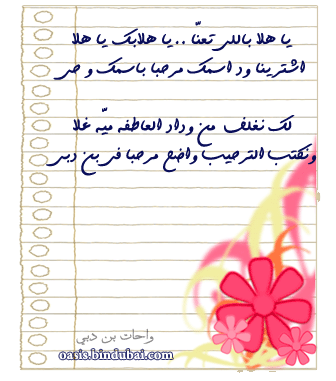 يا هلا باللي تعنّا .. يا هلابك يا هلا
اشترينا ود اسمك مرحبا باسمك وحي
لك نغلف من وداد العاطفه ميّه غلا
ونكتب الترحيب واضح مرحبا في بن دبي
واحات بن دبي
oasis.bindubai.com